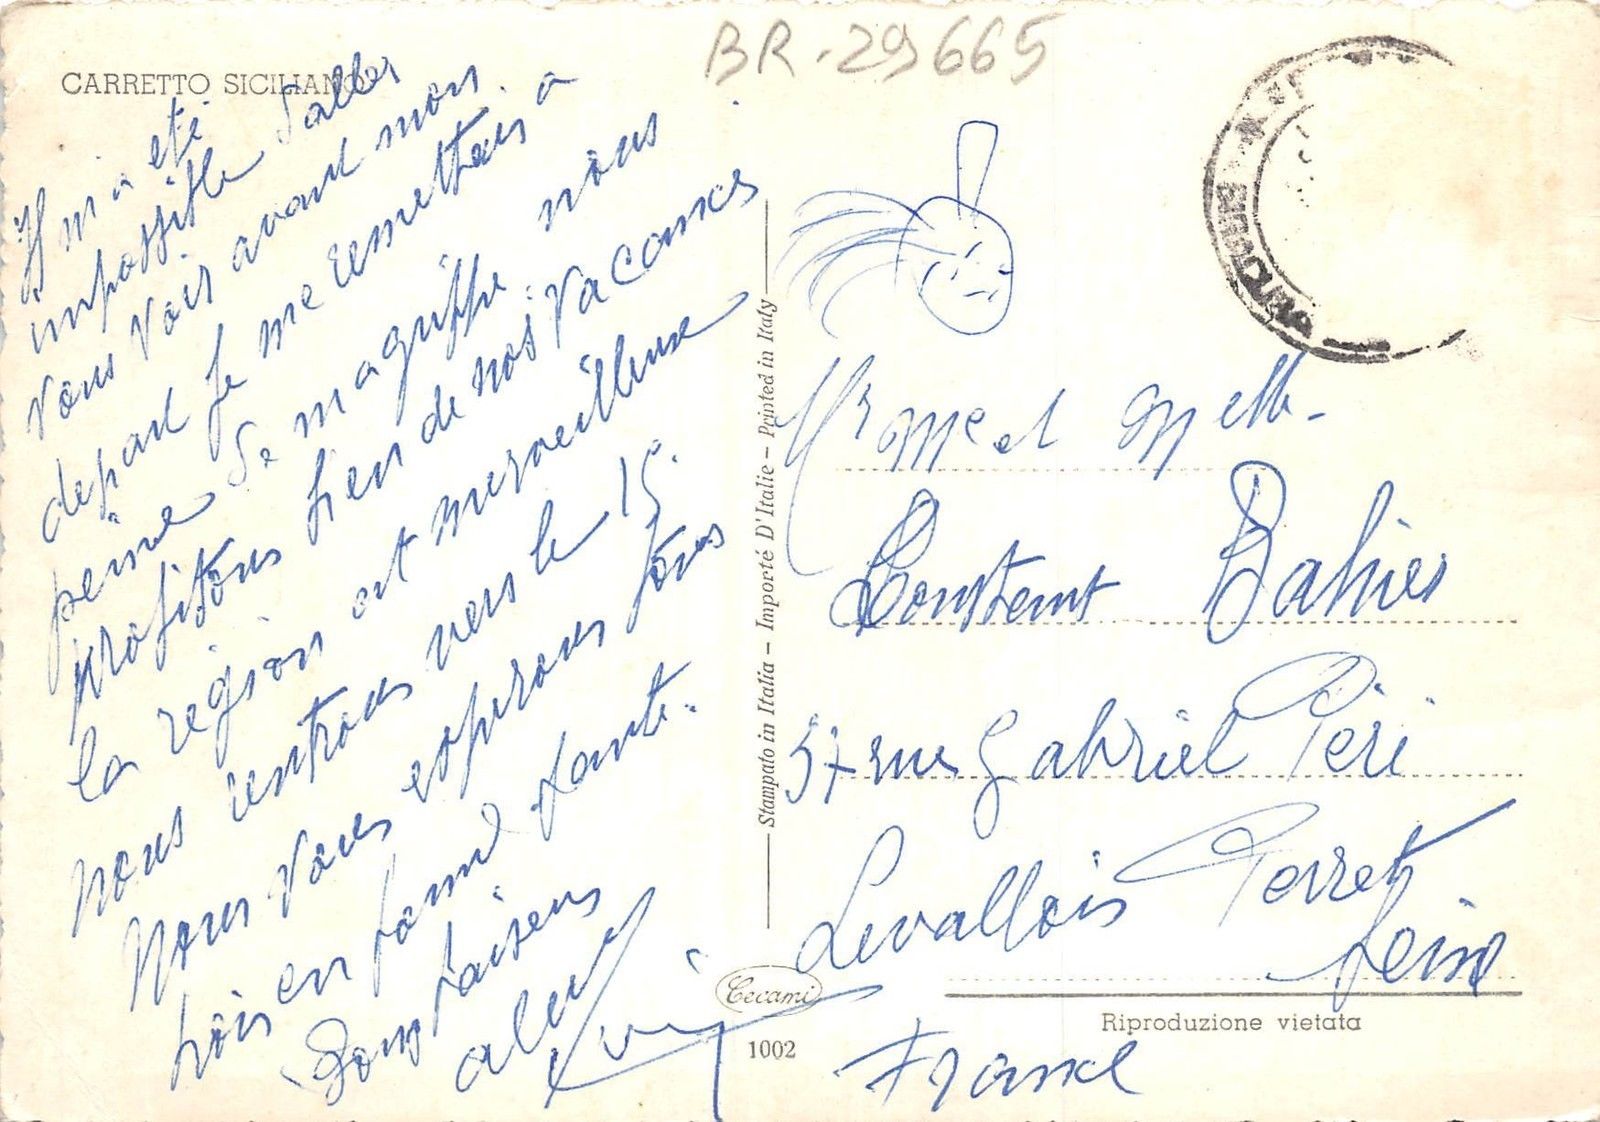 BR-29665
CARRETTO SICILIANO
Il m'a été
impossible d'aller
vous voir avant mon
départ je me remettais à
peine. Se magnifique nous
profitons bien de nos vacances
la région est merveilleuse
nous rentrons vers le 15.
Nous vous espérons tous
trois en bonne santé.
Bons baisers
Stampato in Italia – Importé D'Italie – Printed in Italy
Mr Me et Melle
Constant Bahier
57 rue Gabriel Peri
Levallois Perret
Seine
France
Cecami
1002
Riproduzione vietata